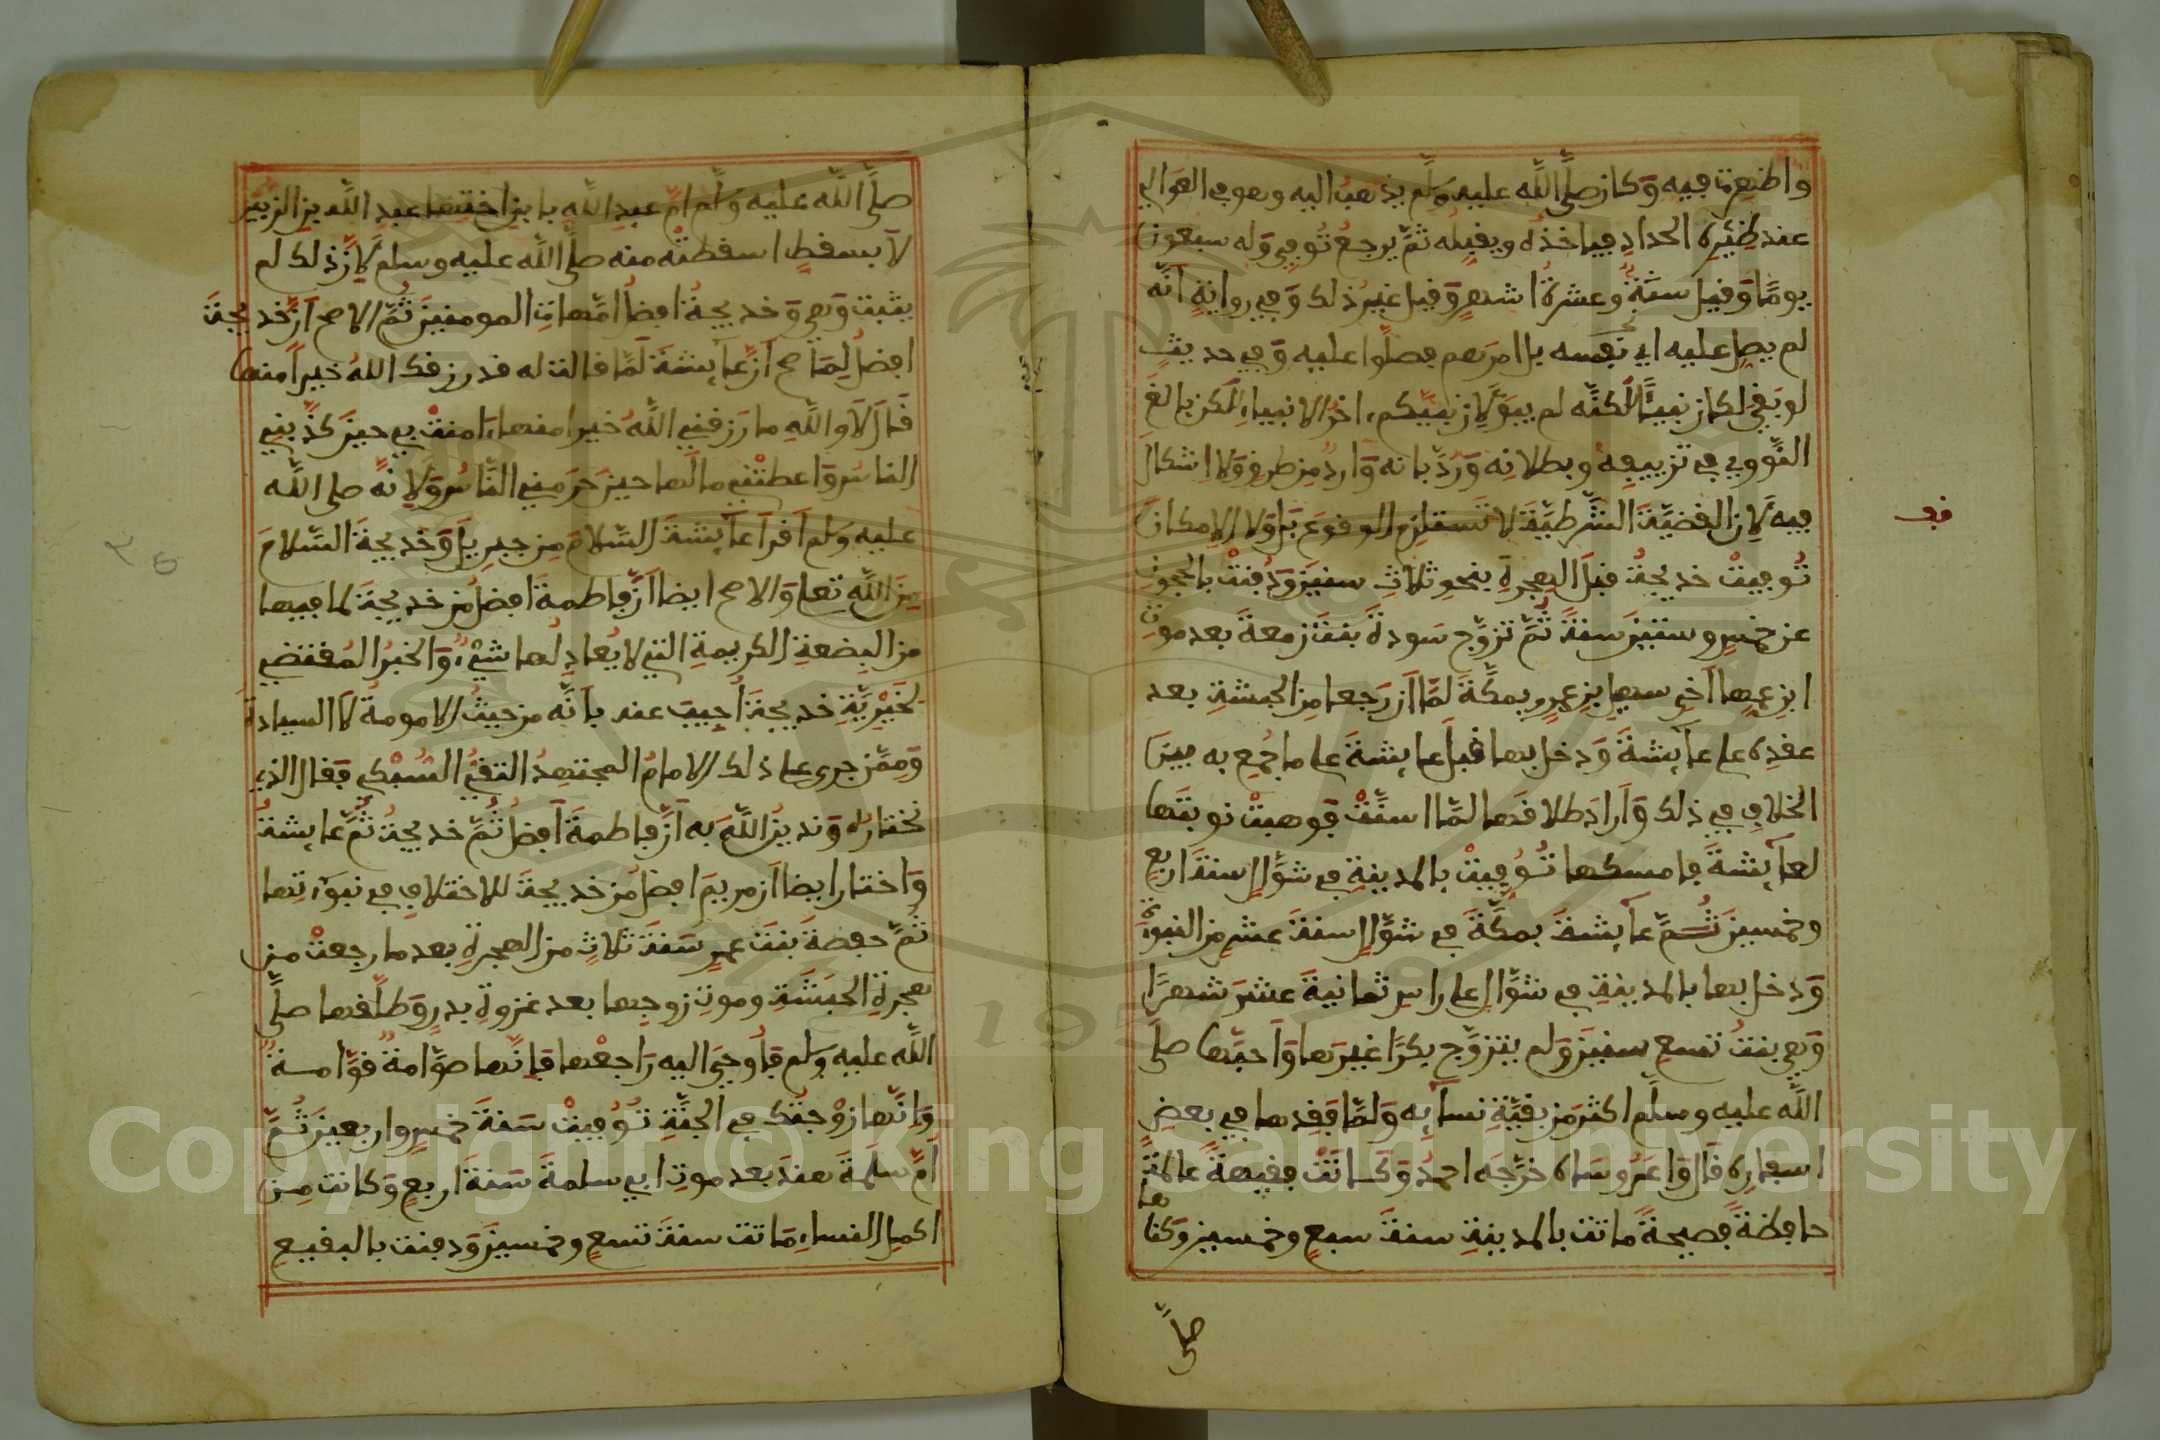 واطنعِت فيه وكان صلَّى اللَّه عليه وسلَّم يذهب اليه وهو في العوالي
عند ظئره الحداد فياخذه ويقبله ثمَّ يرجع تُوفي وله سبعون
يومًا وقيل ستة وعشرة اشهر وقيل غير ذلك وفي رواية انَّه
لم يصل عليه اي بنفسه بل امرهم فصلّوا عليه وفي حديث
لو بقي لكان نبيًّا لكنَّه لم يبق لان نبيّكم اخر الانبياء لكن بالغ
النَّووي في تزييفه وبطلانه ورُدَّ بانه وارد من طرف ولا اشكال
فيه لان القضيَّة الشرطيَّة لا تستلزم الوقوع بل ولا الامكان
تُوفيتْ خديجةُ قبل الهجرة بنحو ثلاث سنين ودُفنتْ بالحجون
عن خمس وستين سنة ثُمَّ تزوَّج سودة بنت زمعة بعد موت
ابن عمها اخي سهيل بن عمرو بمكَّة لمَّا ان رجعا من الحبشة بعد
عقده على عآئشة ودخل بها قبل عائشة على ما جُمع به بين
الخلاف في ذلك واراد طلاقها لمَّا اسنَّتْ فوهبتْ نوبتها
لعآئشة فامسكها تُوُفيتْ بالمدينة في شوَّال سنة اربع
وخمسين ثُمَّ عآئشة بمكَّة في شوَّال سنة عشر من النبوة
ودخل بها بالمدينة في شوَّال على راس ثمانية عشر شهرًا
وهي بنتُ تسع سنين ولم يتزوَّج بكرًا غيرها واحبّها صلَّى
اللَّه عليه وسلَّم اكثر من بقيَّة نسآئه ولمَّا فقدها في بعض
اسفاره قال واعروساه خرَّجه احمدُ وكانتْ فقيهة عالمة
حافظة فصيحة ماتت بالمدينة سنة سبع وخمسين وكنا
ها
صلَّى
فف
صلَّى اللَّه عليه وسلَّم امّ عبد اللَّه بابن اختها عبد اللَّه بن الزبير
لا بسقط اسقطتْه منه صلَّى اللَّه عليه وسلم لان ذلك لم
يثبت وهي وخديجةُ افضلُ امّهات المومنين ثُمَّ الاصح انَّ خديجة
افضل لِمَا صح انَّ عآئشة لمَّا قالت له قد رزقك اللهُ خيرًا منها
قال لا واللَّه ما رزقني اللَّهُ خيرا منها امنتْ بي حين كذَّبني
الناس واعطتْني مالها حين حرمني النَّاس ولانه صلى اللَّه
عليه وسلم اقرا عآئشة السّلام من جبريل وخديجة السّلام
من اللَّه تعلى والاصح ايضا انَّ فاطمة افضل من خديجة لما فيها
من البضعة الكريمة التي لا يُعادلها شيْءٌ والخبر المُقتضي
لخيريَّة خديجة اُجيب عنه بانَّه من حيثُ الامومة لا السيادة
وممَّن جرى على ذلك الامام المجتهدُ التقيُّ السُّبْكي فقال الذي
نختاره وندينُ اللَّه به انَّ فاطمة افضل ثُمَّ خديجةُ ثُمَّ عآئشةُ
واختار ايضا ان مريم افضل من خديجة للاختلاف في نبوّتها
ثُمَّ حفصة بنت عمر سنة ثلاث من الهجرة بعد ما رجعتْ من
هجرة الحبشة وموت زوجها بعد غزوة بدر وطلَّقها صلَّى
اللَّه عليه وسلم فاُوحي اليه راجعْها فانَّها صوَّامةٌ قوَّامةٌ
وانَّها زوْجتُك في الجنَّة تُوُفيتْ سنة خمس واربعين ثُمَّ
امّ سلمة هند بعد موت ابي سلمة سنة اربع وكانت من
اكمل النساء ماتت سنة تسع وخمسين ودفنت بالبقيع
Copyright © King Saud University
1957